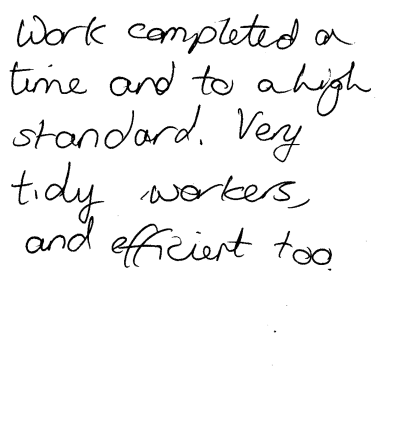 Work completed on
time and to a high
standard. Very
tidy workers,
and efficient too.